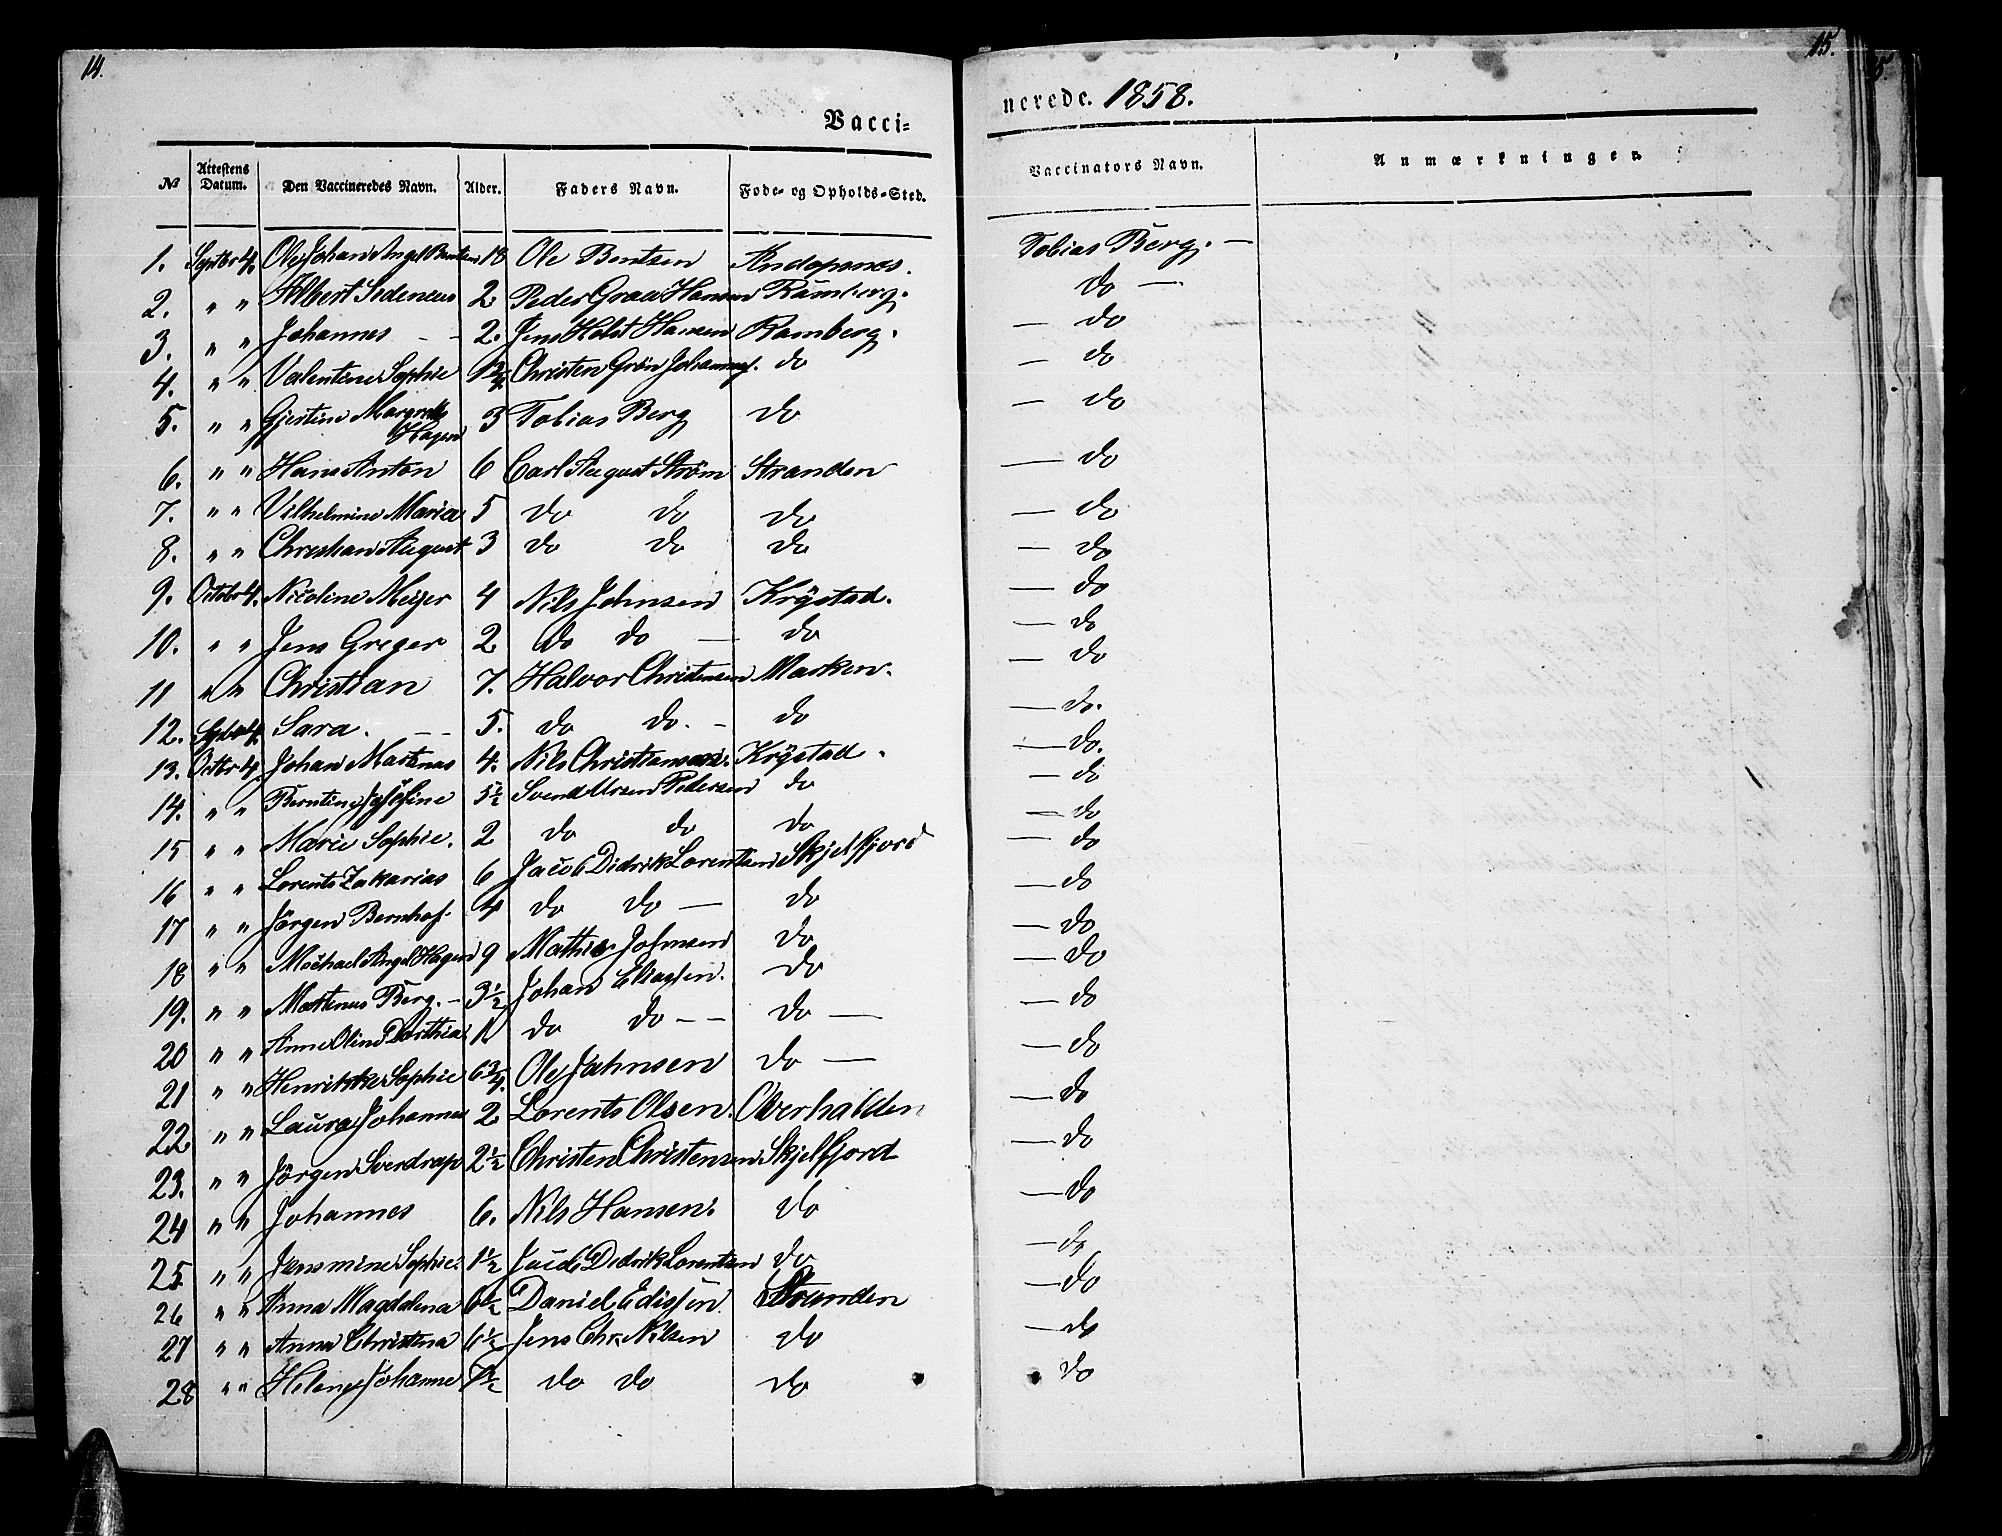 14.
15.
Vacci-
nerede. 1858.
№ Attestens Datum. Den Vaccineredes Navn. Alder. Faders Navn. Føde- og Opholds-Sted. Vaccinators Navn. Anmærkninger.
1. Septbr 4. Ole Johan Angel Bentsen 18 Ole Bentsen Andopsnes. Tobias Berg. —
2. " " Albert Sedeneus 2 Peder Graa Hansen Ramberg. do —
3. " " Johannes - - 2. Jens Holst Hansen Ramberg. — do
4. " " Valentine Sophie 1 3/4 Christen Grön do — do
5. " " Gjertine Margrethe Hagen 3 Tobias Berg do — do
6. " " Hans Anton 6 Carl August Strøm Stranden — do
7. " " Vilhelmine Maria 5 do do do — do
8. " " Christian August 3 do do do — do
9. Octobr 4. Nicoline Meijer 4 Nils Johnsen Krÿstad. — do
10. " " Jens Greger 2 do do — do — do
11 " " Christian 7. Halvor Christensen Marken. — do
12. Septbr 4. Sara. - - 5. do do. - do — do.
13. Octbr 4. Johan Martinus 4. Nils Christiansen. Krÿstad. — do.
14. " " Berntine Josefine 5 1/2 Svend Ursen Pedersen do — do
15 " " Marie Sophie. 2 do do do — do
16 " " Lorents Zakarias 6 Jacob Didrik Lorentsen Skjelfjord — do
17 " " Jörgen Bernhof. 4 do do — do — do
18 " " Michael Angel Hagen 9 Mathis Johnsen do — do
19. " " Martinus Berg. - 3 1/2 Johan Eliassen. do — do
20 " " Anne Oline Dorthea 1 do do - - do — — do
21 " " Henrikke Sophie 6 3/4. Ole Jahnsen do — — do
22 " " Laura Johanna 2. Lorents Olsen. Overhalden — do
23. " " Jörgen Sverdrup 2 1/2 Christen Christensen Skjelfjord — do
24 " " Johannes 6. Nils Hansen. do — do
25 " " Jensmine Sophie. 1 1/2 Jacob Didrik Lorentsen do — do
26 " " Anna Magdalena 6 1/2 Daniel Edissen Stranden — do
27 " " Anna Christina 6 1/2 Jens Chr. Nilsen do — do
28 " " Helene Johanne 7 1/2 do do do do